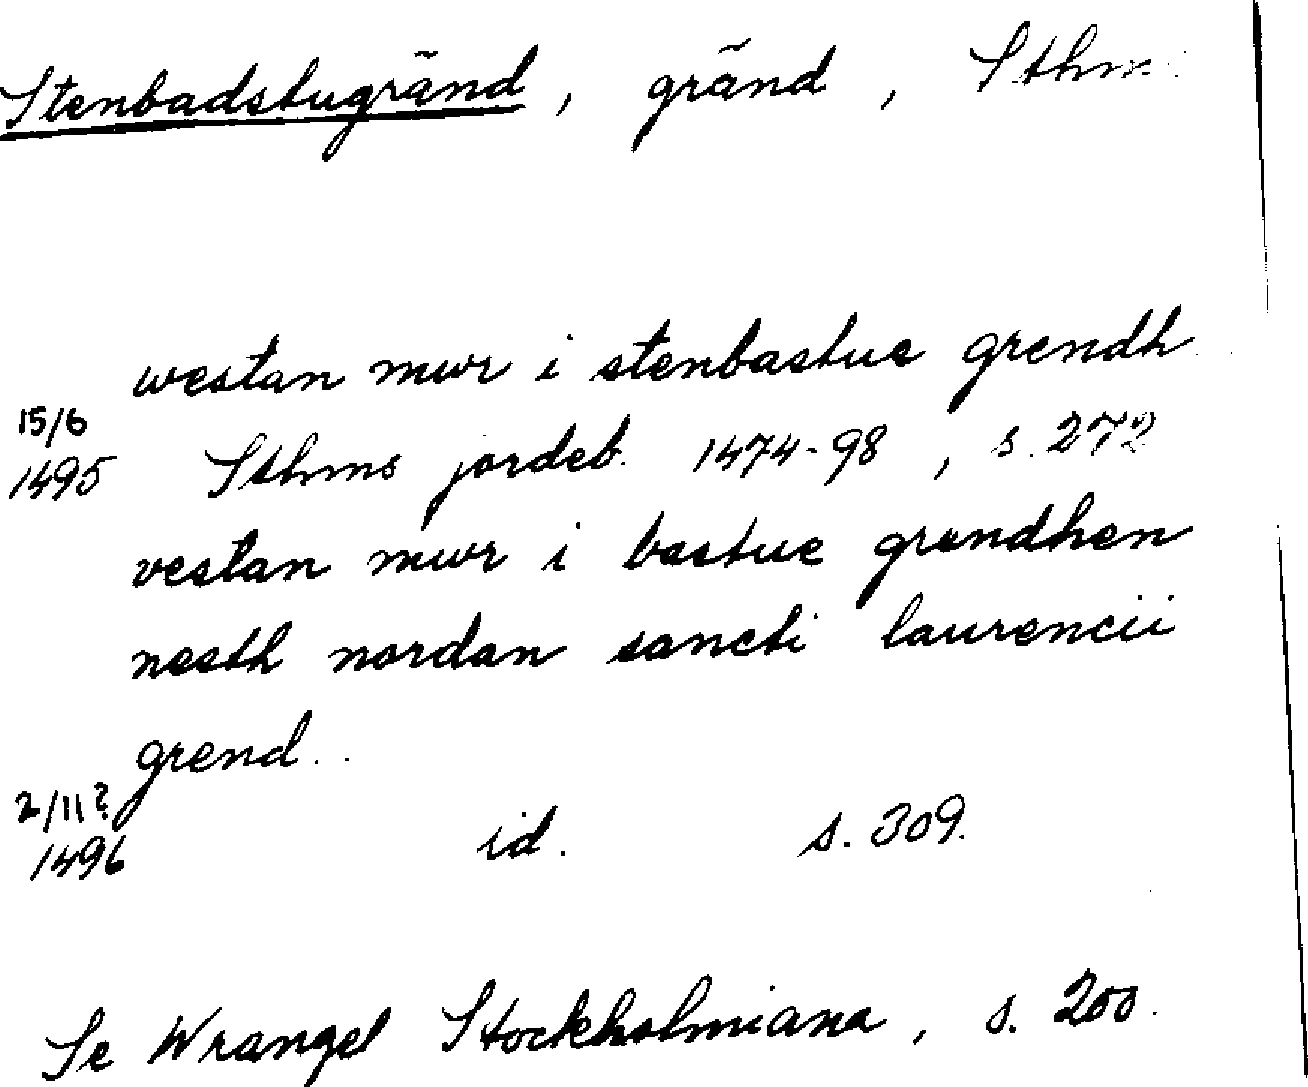 Stenbadstugränd, gränd, Sthm.
westan mwr i stenbastue grendh
15/6
1495 Sthms jordeb. 1474-98, s. 272
vestan mwr i bastue grendhen
nesth nordan sancti laurencii
grend..
2/11?
1496 id. s. 309.
Se Wrangel Stockholmiana, s. 200.